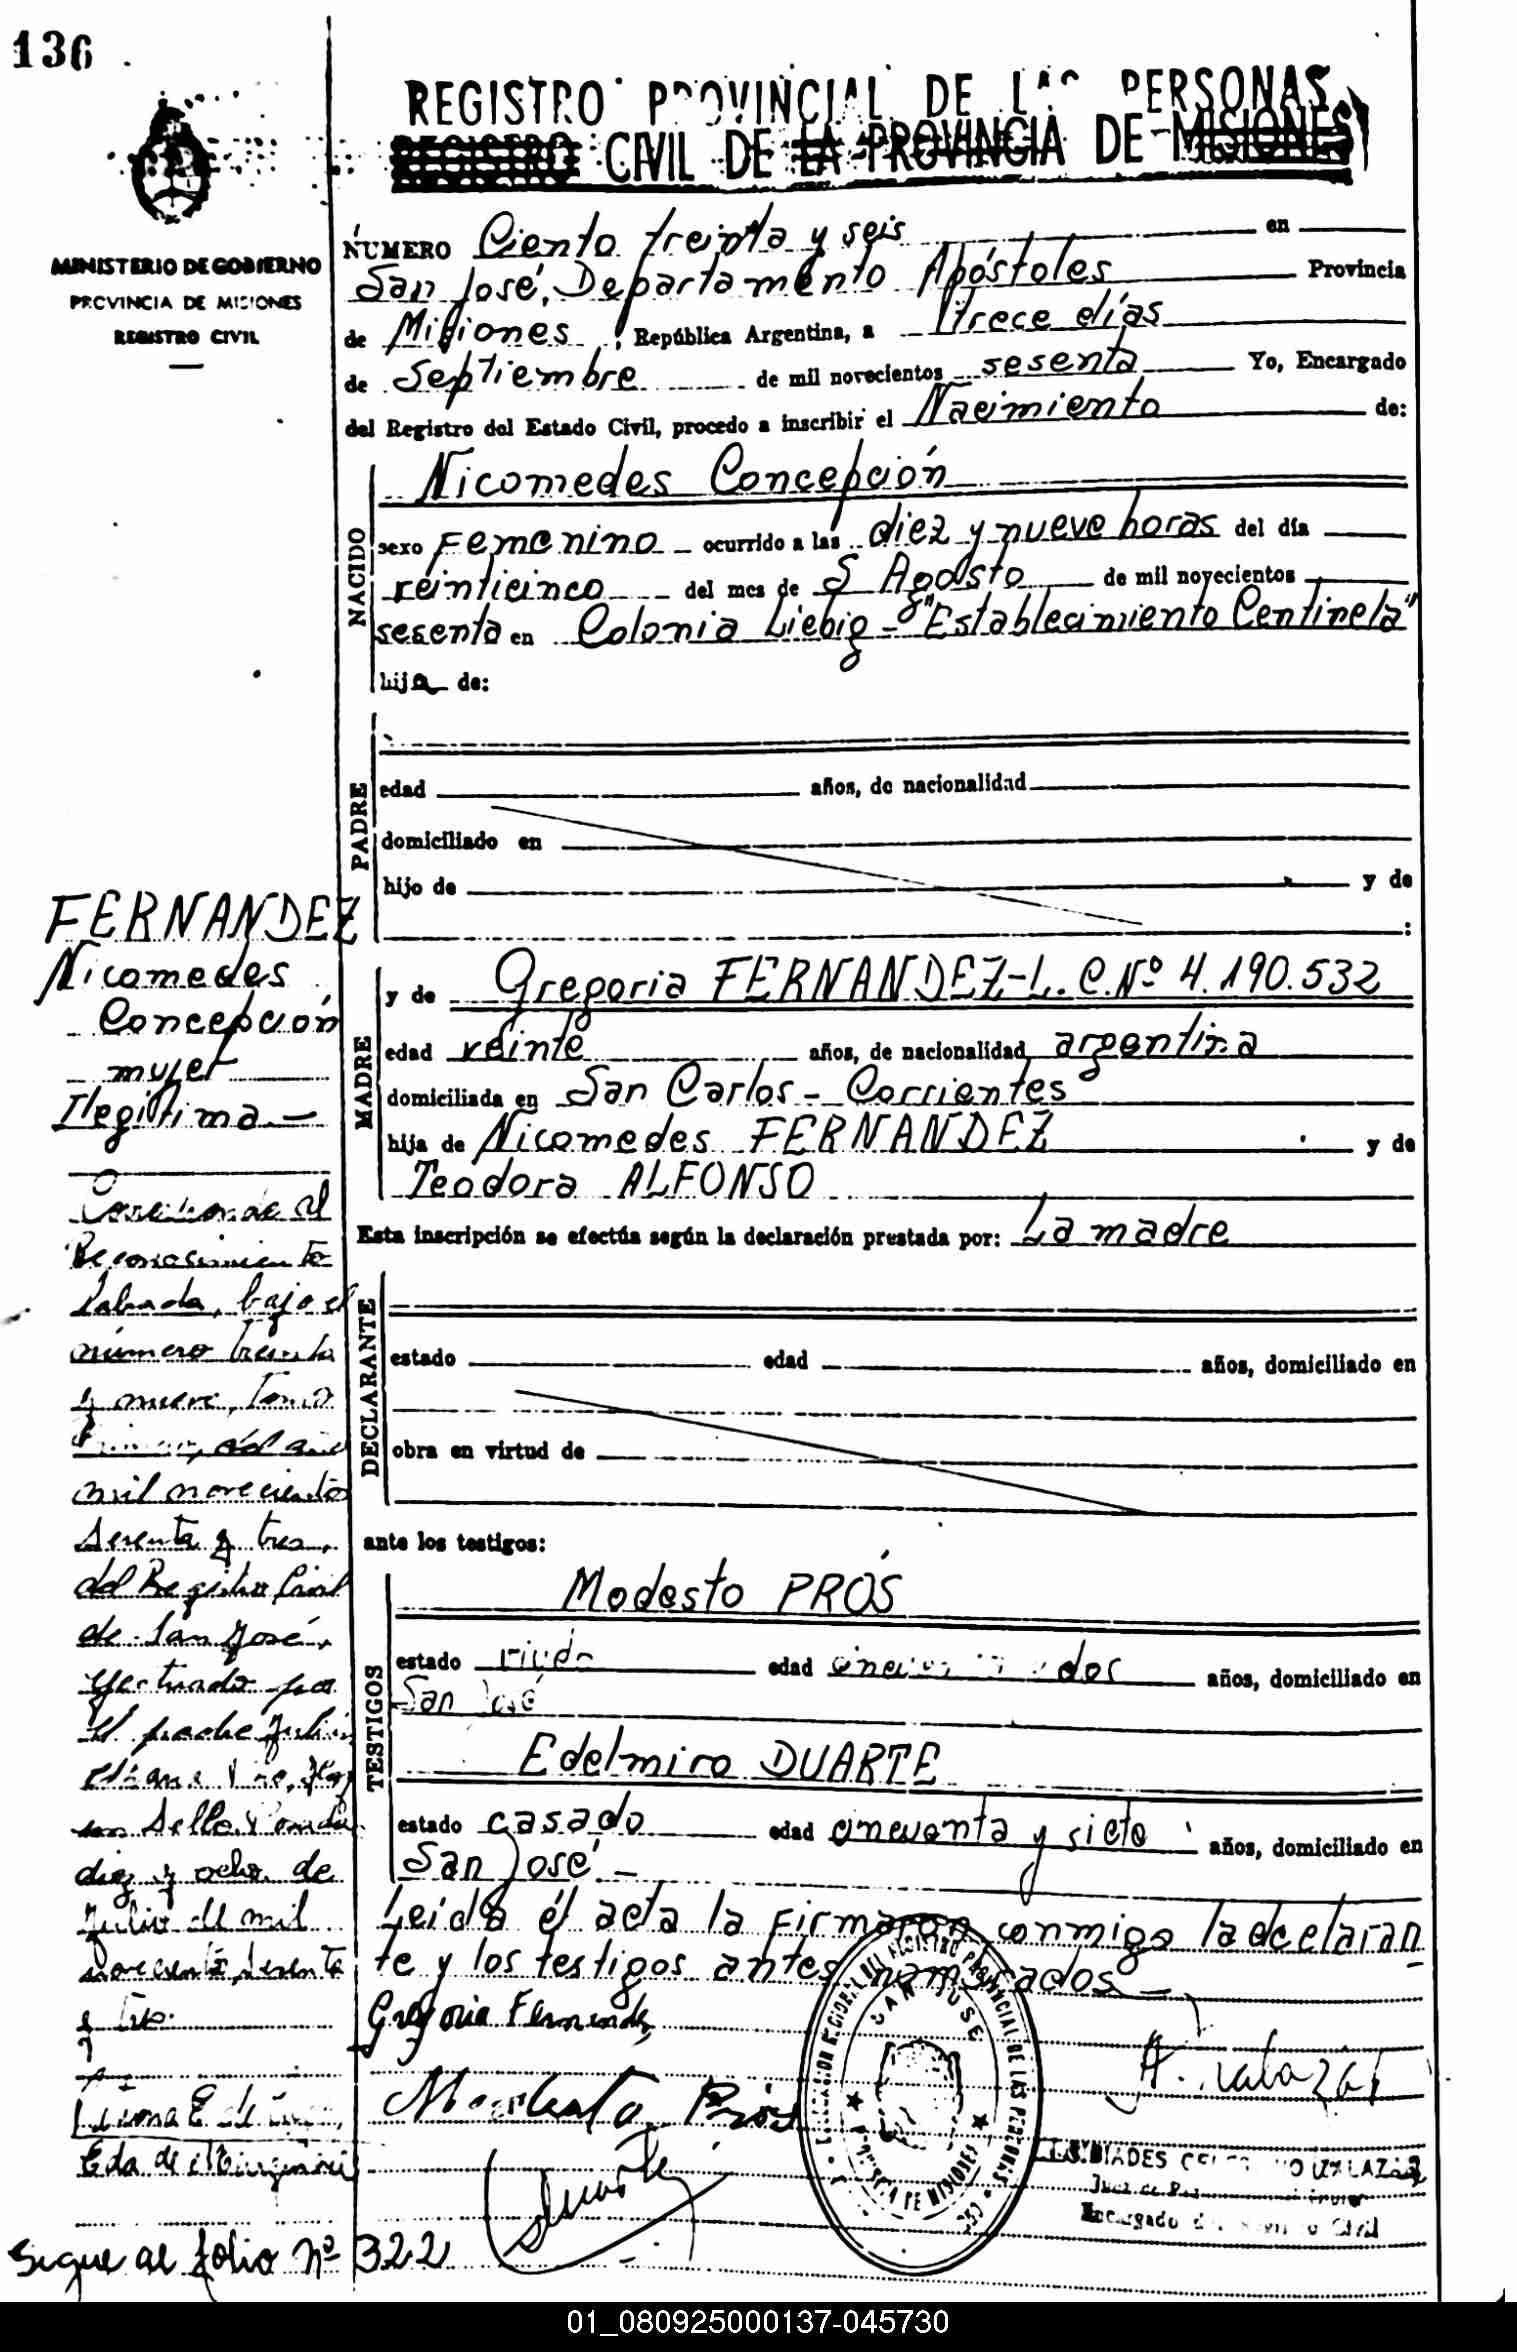 136
REGISTRO PROVINCIAL DE LAS PERSONAS
REGISTRO CIVIL DE LA PROVINCIA DE MISIONES
MINISTERIO DE GOBIERNO
PROVINCIA DE MISIONES
REGISTRO CIVIL
NUMERO Ciento treinta y seis en
San José, Departamento Apóstoles Provincia
de Misiones, República Argentina, a trece días
de Septiembre de mil novecientos sesenta Yo, Encargado
del Registro del Estado Civil, procedo a inscribir el Nacimiento de:
NACIDO
Nicomedes Concepción
sexo Femenino ocurrido a las diez y nueve horas del día
veinticinco del mes de Agosto de mil novecientos
sesenta en Colonia Liebig - "Establecimiento Centinela"
hija de:
PADRE
edad años, de nacionalidad
domiciliado en
hijo de y de
:
FERNANDEZ
Nicomedes
Concepción
mujer
Ilegítima.-
MADRE
y de Gregoria FERNANDEZ-L.C.Nº 4.190.532
edad veinte años, de nacionalidad argentina
domiciliada en San Carlos - Corrientes
hija de Nicomedes FERNANDEZ y de
Teodora ALFONSO
Esta inscripción se efectúa según la declaración prestada por: La madre
DECLARANTE
estado edad años, domiciliado en
obra en virtud de
ante los testigos:
TESTIGOS
Modesto PRÓS
estado viudo edad cincuenta y dos años, domiciliado en
San José
Edelmiro DUARTE
estado casado edad cincuenta y siete años, domiciliado en
San José -
Leída el acta la firmaron conmigo la declaran
te y los testigos antes nombrados -
Gregoria Fernandez
Modesto Prós
Duarte
Corresponde al
Reconocimiento
labrada, bajo el
número treinta
y nueve, tomo
Primero, del año
mil novecientos
sesenta y tres,
del Registro Civil
de San José,
efectuado por
el padre
diez y ocho de
Julio de mil
novecientos sesenta
y tres.
SAN JOSE
Encargado del Registro Civil
Sigue al folio nº 322
01_080925000137-045730